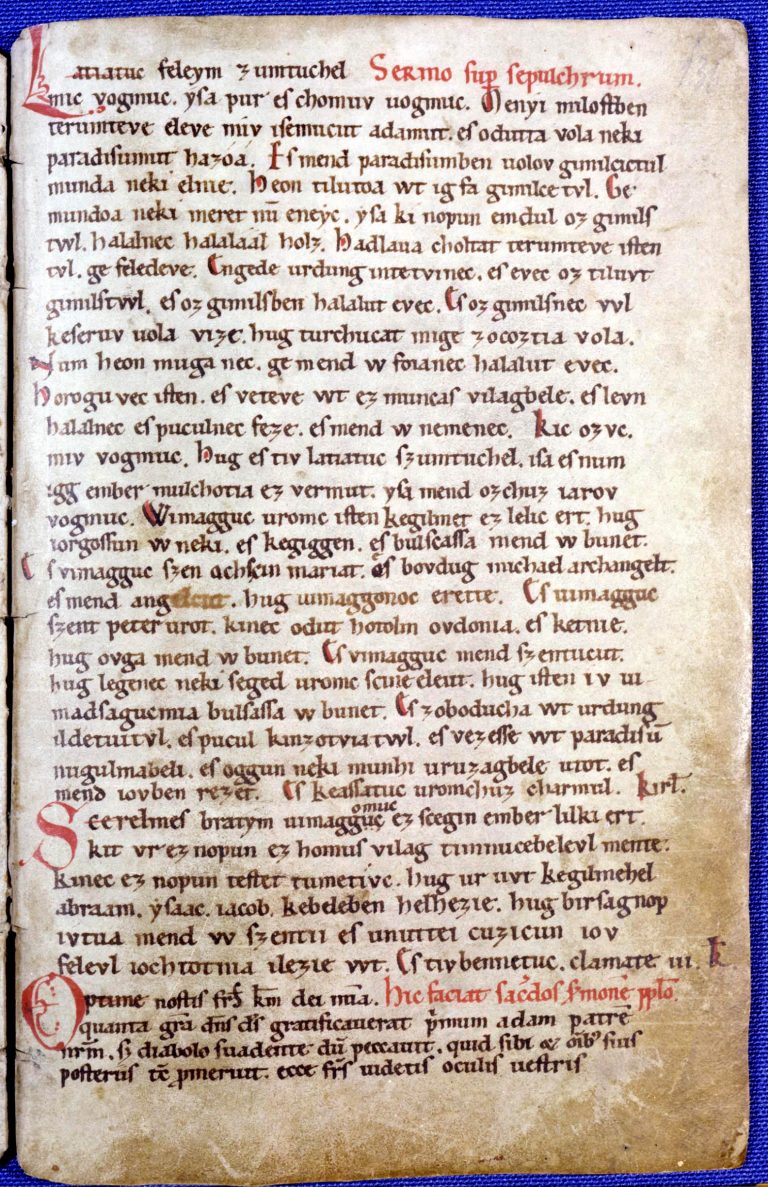 Latiatuc feleym zumtuchel Sermo sup sepulchrum.
mic vogmuc. ysa pur es chomuv uogmuc. Menyi milostben
terumteve eleve miv isemucut adamut. es odutta vola neki
paradisumut hazóá. Es mend paradisumben uolov gimilcictul
munda neki elnie. heon tilutoa wt ig fa gimilce tvl. Ge
mundoa neki meret nū eneyc. ysa ki nopun emdul oz gimils
twl. halalnec halaláál holz. hadlaua choltat terumteve isten
tvl. ge feledeve. Engede urdung intetvinec. es evec oz tiluvt
gimilstwl. es oz gimilsben halalut evec. Es oz gimilsnec vvl
keseruv uola vize. hug turchucat mige zocoztia vola.
Num heon muga nec. ge mend w foianec halalut evec.
horogu vec isten. es veteve wt ez muncas vilagbele. es levn
halalnec es puculnec feze. es mend w nemenec. kic ozvc.
miv vogmuc. hug es tiv latiatuc szumtuchel. isa es num
igg ember mulchotia ez vermut. ysa mend ozchuz iarov
vogmuc. Wimagguc uromc isten kegilmet ez lelic ert. hug
iorgossun w neki. es kegiggen. es bulscassa mend w bunet.
Es vimagguc szen achscin mariat. es bovdug michael archangelt.
es mend angelcut. hug uimaggonoc erette. Es uimagguc
szent peter urot. kinec odut hotolm ovdonia. es ketnie.
hug ovga mend w bunet. Es vimagguc mend szentucut.
hug legenec neki seged uromc scine eleut. hug isten iv ui
madsagucmia bulsassa w bunet. Es zoboducha wt urdung
ildetuitvl. es pucul kinzotviatwl. es vezesse wt paradisū
nugulmabeli. es oggun neki munhi uruzagbele utot. es
mend iovben rezet. Es keassatuc uromchuz charmul. kirl.
Scerelmes bratym uimagguc omuc ez scegin ember lilki ert.
kit vr ez nopun ez homus vilag timnucebelevl mente.
kinec ez nopun testet tumetivc. hug ur uvt kegilmehel
abraam. ysaac. iacob. kebeleben helhezie. hug birsagnop
ivtua mend w szentii es unuttei cuzicun iov
felevl iochtotnia ilezie wt. Es tiv bennetuc. clamate iii. k.
Optime nostis frs km dei mia. hic faciat sacdos smone pplo.
quanta gra dns ds gratificaverat pmum adam patrē
nrm. sz diabolo suadente dū peccauit. quid sibi & oibus suis
posteris tc pmeruit. ecce frs videtis oculis vestris